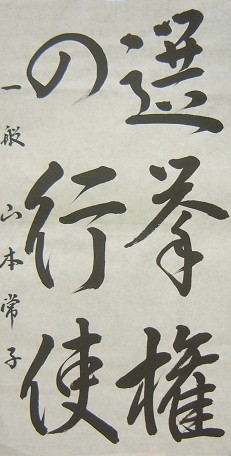 選挙権
の行使
一般 山本常子